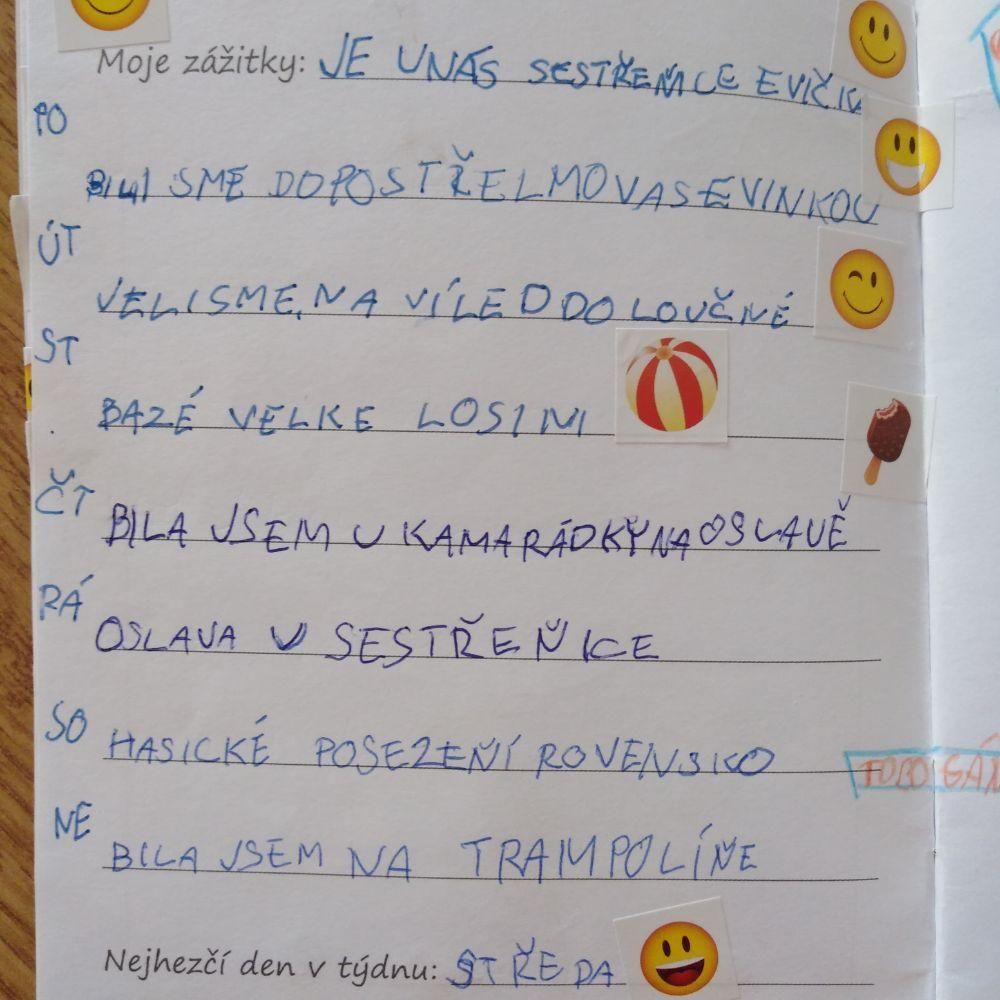 Moje zážitky: JE UNÁS SESTŘEŇICE EVIČK
PO
BILI SME DOPOSTŘELMOVASEVINKOU
ÚT
VELISME, NA VÍLED DO LOUČNÉ
ST
BAZÉ VELKE LOSINI
ČT
BILA JSEM U KAMARÁDKY NA OSLAVĚ
RÁ
OSLAVA U SESTŘEŇICE
SO
HASICKÉ POSEZEŇÍ ROVENSKO
TOBOGÁN
NE
BILA JSEM NA TRAMPOLÍŇE
Nejhezčí den v týdnu: STŘEDA